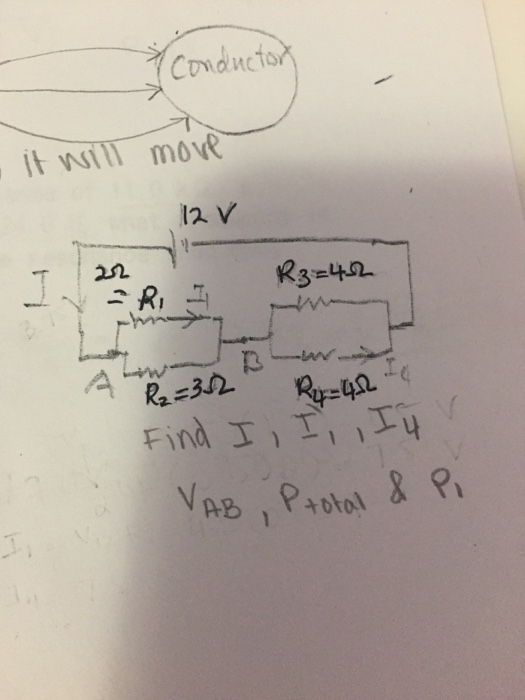 Conductor
it will move
12 V
I
2Ω
= R1
I1
R3=4Ω
A
R2=3Ω
B
R4=4Ω
I4
Find I, I1, I4
VAB, Ptotal & P1